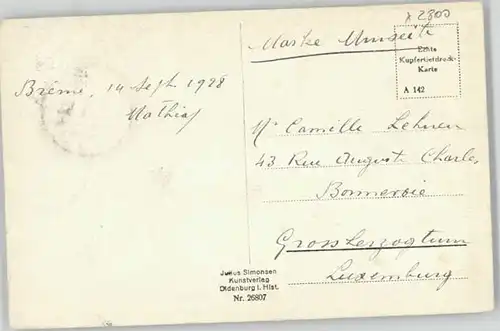 x 2300
Marke Umseits
Echte
Kupfertiefdruck-
Karte
A 142
Brême, 14 Sept. 1928
Mathias
Mr Camille Lehnen
43 Rue Auguste Charles
Bonnevoie
Grossherzogtum
Luxemburg
Julius Simonsen
Kunstverlag
Oldenburg i. Hlst.
Nr. 26807